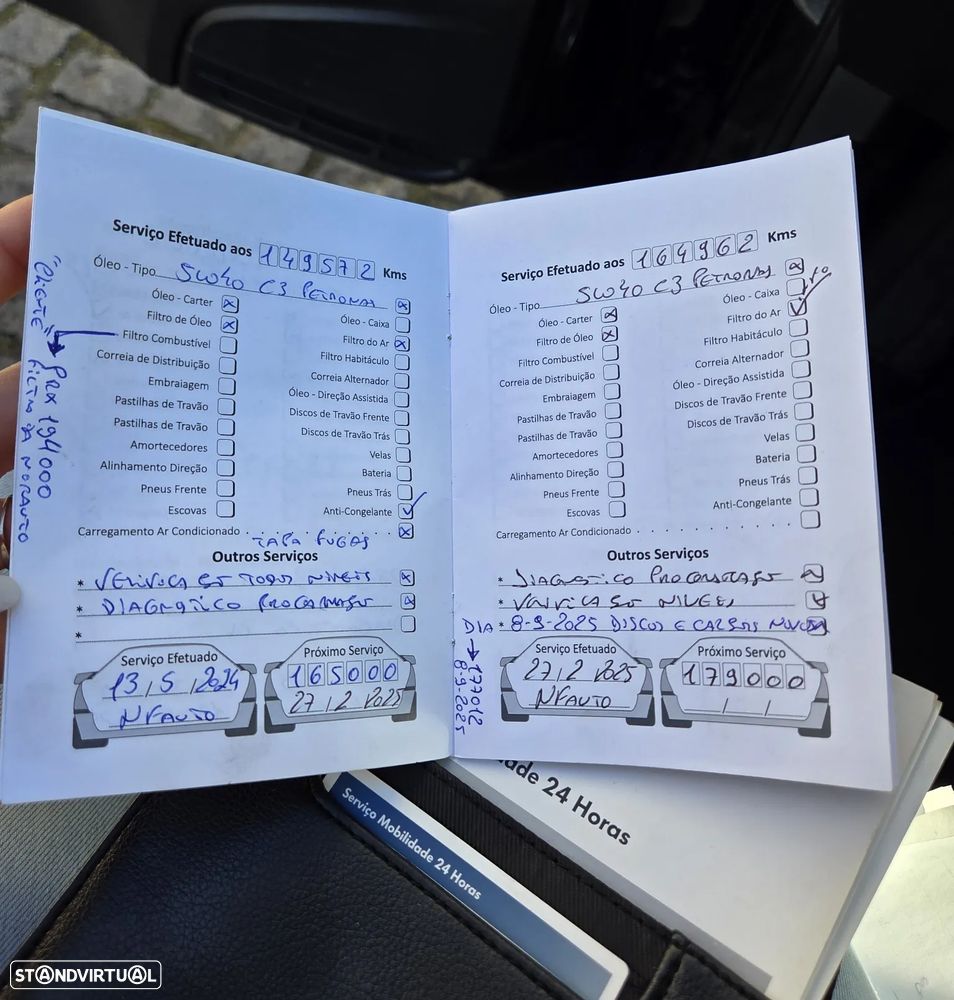 Serviço Efetuado aos 149572 Kms
Óleo - Tipo 5W40 C3 PETRONAS
Óleo - Carter
Filtro de Óleo
Filtro Combustível
Correia de Distribuição
Embraiagem
Pastilhas de Travão
Pastilhas de Travão
Amortecedores
Alinhamento Direção
Pneus Frente
Escovas
Óleo - Caixa
Filtro do Ar
Filtro Habitáculo
Correia Alternador
Óleo - Direção Assistida
Discos de Travão Frente
Discos de Travão Trás
Velas
Bateria
Pneus Trás
Anti-Congelante
Carregamento Ar Condicionado
TAPA FUGAS
Outros Serviços
* VERIFICAÇÃO TODOS NIVEIS
* DIAGNOSTICO PROGRAMAÇÃO
*
Serviço Efetuado
13/5/2024
NFAUTO
Próximo Serviço
165000
27/2/2025
"CLIENTE"
PRX 194000
FILTRO DA NORAUTO
Serviço Efetuado aos 164962 Kms
Óleo - Tipo 5W40 C3 PETRONAS
Óleo - Carter
Filtro de Óleo
Filtro Combustível
Correia de Distribuição
Embraiagem
Pastilhas de Travão
Pastilhas de Travão
Amortecedores
Alinhamento Direção
Pneus Frente
Escovas
Óleo - Caixa
Filtro do Ar
Filtro Habitáculo
Correia Alternador
Óleo - Direção Assistida
Discos de Travão Frente
Discos de Travão Trás
Velas
Bateria
Pneus Trás
Anti-Congelante
Carregamento Ar Condicionado
Outros Serviços
* DIAGNOSTICO PROGRAMAÇÃO
* VERIFICAÇÃO NIVEIS
DIA * 8-9-2025 DISCOS E CALÇOS NOVOS
177012
8-9-2025
Serviço Efetuado
27/2/2025
NFAUTO
Próximo Serviço
179000
/ /
ade 24 Horas
Serviço Mobilidade 24 Horas
STANDVIRTUAL